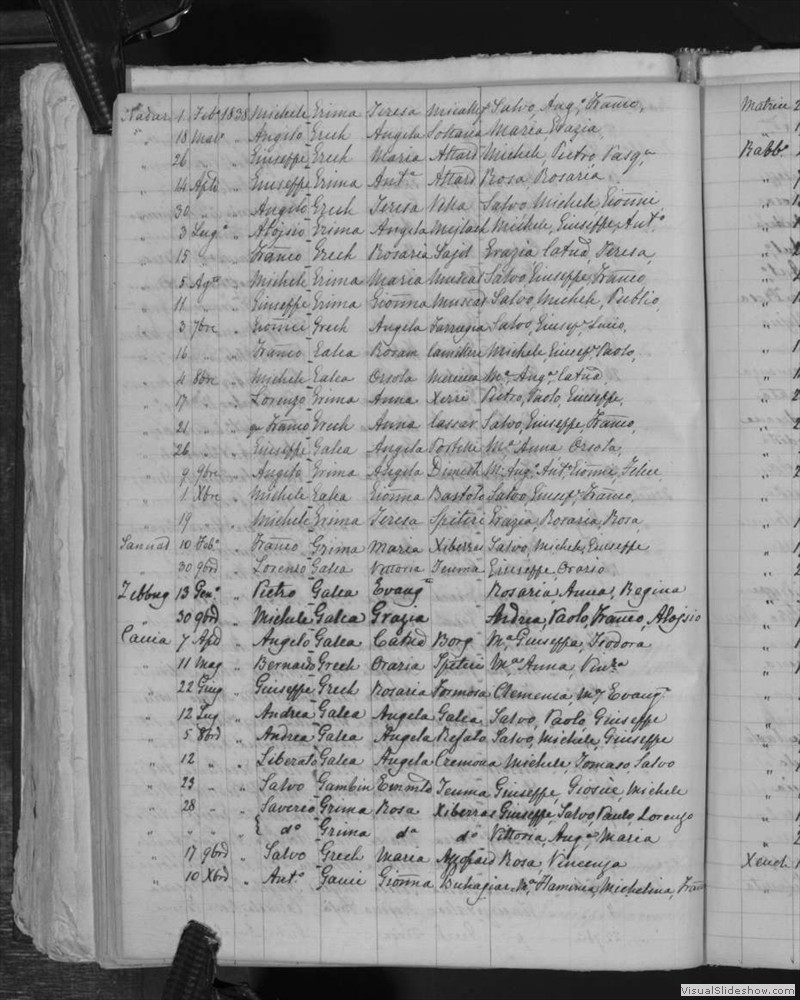 Nadur 1 Feb.o 1838 Michele Grima Teresa Micallef Salvo, Ang.o, Franco,
" 18 Mar.o " Angelo Grech Angela Soltana Maria Grazia,
" 26 " " Giuseppe Grech Maria Attard Michele, Pietro, Pasq.a
" 14 Aple " Giuseppe Grima Ant.a Attard Rosa Rosaria
" 30 " " Angelo Grech Teresa Salvo Michele Gionni
" 3 Lug.o " Aloisio Grima Angela Mejlach Michele, Giuseppe Ant.o
" 15 " " Franco Grech Rosaria Sajt Grazia Catna, Teresa,
" 5 Ag.o " Michele Grima Maria Muscat Salvo, Giuseppe, Franco,
" 11 " " Giuseppe Grima Gionna Muscat Salvo, Michele, Publio,
" 3 7bre " Gionni Grech Angela Farrugia Salvo, Giusep.e Lucio,
" 16 " " Franco Galea Rosam Camilleri Michele, Giusep.e Paolo,
" 4 8bre " Michele Galea Orsola M.a Ang.a Catna,
" 17 " " Lorenzo Grima Anna Xerri Pietro, Paolo, Giuseppe,
" 21 " qm Franco Grech Anna Cassar Salvo, Giuseppe, Franco,
" 26 " " Giuseppe Galea Angela Portelli M.a Anna Orsola,
" 9 9bre " Angelo Grima Angela Dimech M. Ang.a Ant.o Gionni, Felice
" 1 Xbre " Michele Galea Gionna Bartolo Salvo, Giusep.e Franco,
" 19 " " Michele Grima Teresa Spiteri Grazia, Rosaria, Rosa
Sannad 10 Feb.o " Franco Grima Maria Xiberras Salvo, Michele, Giuseppe
" 30 9brd " Lorenzo Galea Vittoria Teuma Giuseppe, Orazio
Zebbug 13 Gen.o " Pietro Galea Evang.a " Rosaria, Anna, Regina
" 30 9brd " Michele Galea Grazia Andrea, Paolo, Franco, Aloysio
Cauia 7 Apl " Angelo Galea Catna Borg M.a Giuseppa, Teodora
" 11 Mag " Bernardo Grech Orazia Spiteri M.a Anna, Vinz.a
" 22 Giug " Giuseppe Grech Rosaria Formosa Clemenza, M.a Evang.a
" 12 Lug " Andrea Galea Angela Galea Salvo, Paolo, Giuseppe
" 5 8brd " Andrea Galea Angela Refalo Salvo, Michele, Giuseppe
" 12 " " Liberato Galea Angela Cremona Michele, Tomaso, Salvo
" 23 " " Salvo Gambin Teuma Giuseppe, Giosue, Michele
" 28 " " Saverio Grima Rosa Xiberras Giuseppe, Salvo, Paulo, Lorenzo
" " " " E do Grima do do Vittoria, Ang.a Maria
" 17 9brd " Salvo Grech Maria Appard Rosa, Vincenza
" 10 Xbrd " Ant.o Gauci Gionna Buhagiar M.a Flaminia, Michelina, Fran
Matrice 2
Rabb.o 2
Xeuch 1
VisualSlideshow.com